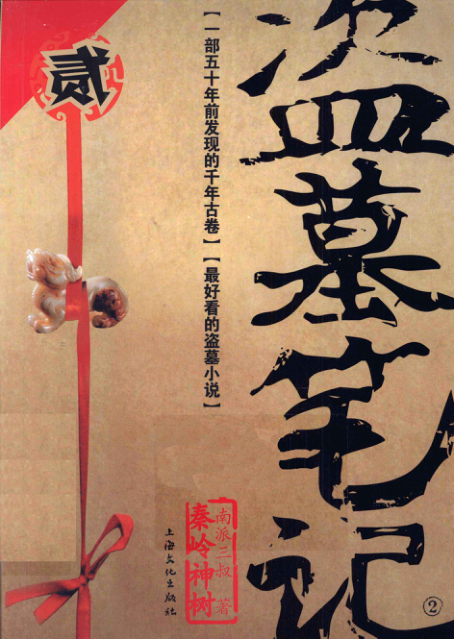 盗墓笔记
②
【一部五十年前发现的千年古卷】【最好看的盗墓小说】
贰
南派三叔 著
秦岭神树
上海文化出版社